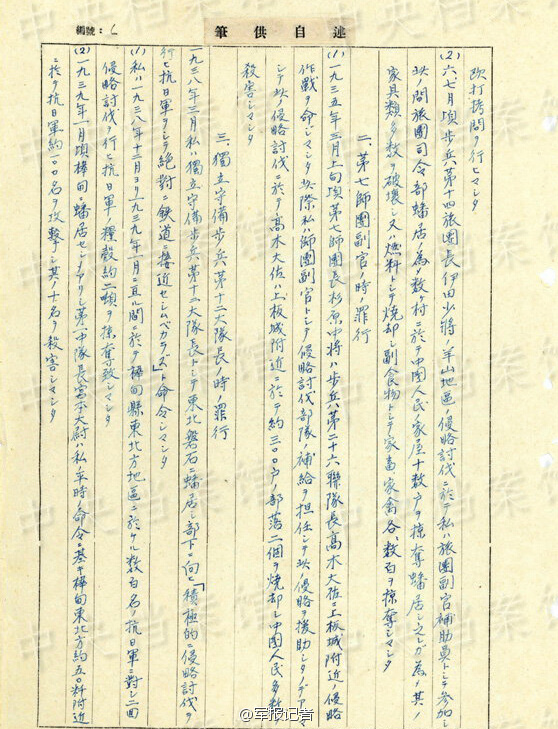 筆供自述
編號：6
改打拷問ヲ行ヒマシタ
(2) 六七月頃步兵第十四旅團長伊田少將ノ羊山地區ノ侵略討伐ニ於テ私ハ旅團副官補助員トシテ参加シ
此ノ間旅團司令部蟠居ノ為メ数ヶ村ニ於テ中國人民ノ家屋十数戸ヲ掠奪蟠居シ之レガ為メ其ノ
家具類多数ヲ破壊シ又ハ燃料トシテ焼却シ副食物トシテ家畜、家禽各々数百ヲ掠奪シマシタ
二、第七師團副官ノ時ノ罪行
(1) 一九三五年三月上旬頃第七師團長杉原中將ハ步兵第二十六聯隊長高木大佐ニ上板城附近ノ侵略
作戰ヲ命ジマシタ此際私ハ師團副官トシテ侵略討伐部隊ノ補給ヲ担任シテ此ノ侵略ヲ援助シタノデアリマ
シテ此ノ侵略討伐ニ於テ高木大佐ハ上板城附近ニ於テ約三〇〇戸ノ部落二個ヲ焼却シ中國人民多数ヲ
殺害シマシタ
三、獨立守備步兵第十二大隊長ノ時ノ罪行
一九三八年三月私ハ獨立守備步兵第十二大隊長トシテ東北磐石ニ蟠居シ部下ニ向ヒ「積極的ニ侵略討伐ヲ
行ヒ抗日軍ヲシテ絶對ニ鉄道ニ接近セシムベカラズ」ト命令シマシタ
(1) 私ハ一九三八年十二月ヨリ一九三九年一月ニ亘ル間ニ於テ樺甸縣東北方地區ニ於ケル数百名ノ抗日軍ニ對シ二回
侵略討伐ヲ行ヒ抗日軍ノ糧穀約二噸ヲ掠奪致シマシタ
(2) 一九三九年一月頃樺甸ニ蟠居セシメアリシ第一中隊長宮本大尉ハ私ノ平時ノ命令ニ基キ樺甸東北方約五〇粁附近
ニ於テ抗日軍約一〇〇名ヲ攻撃シ其ノ十名ヲ殺害シマシタ
中央档案馆
@军报记者